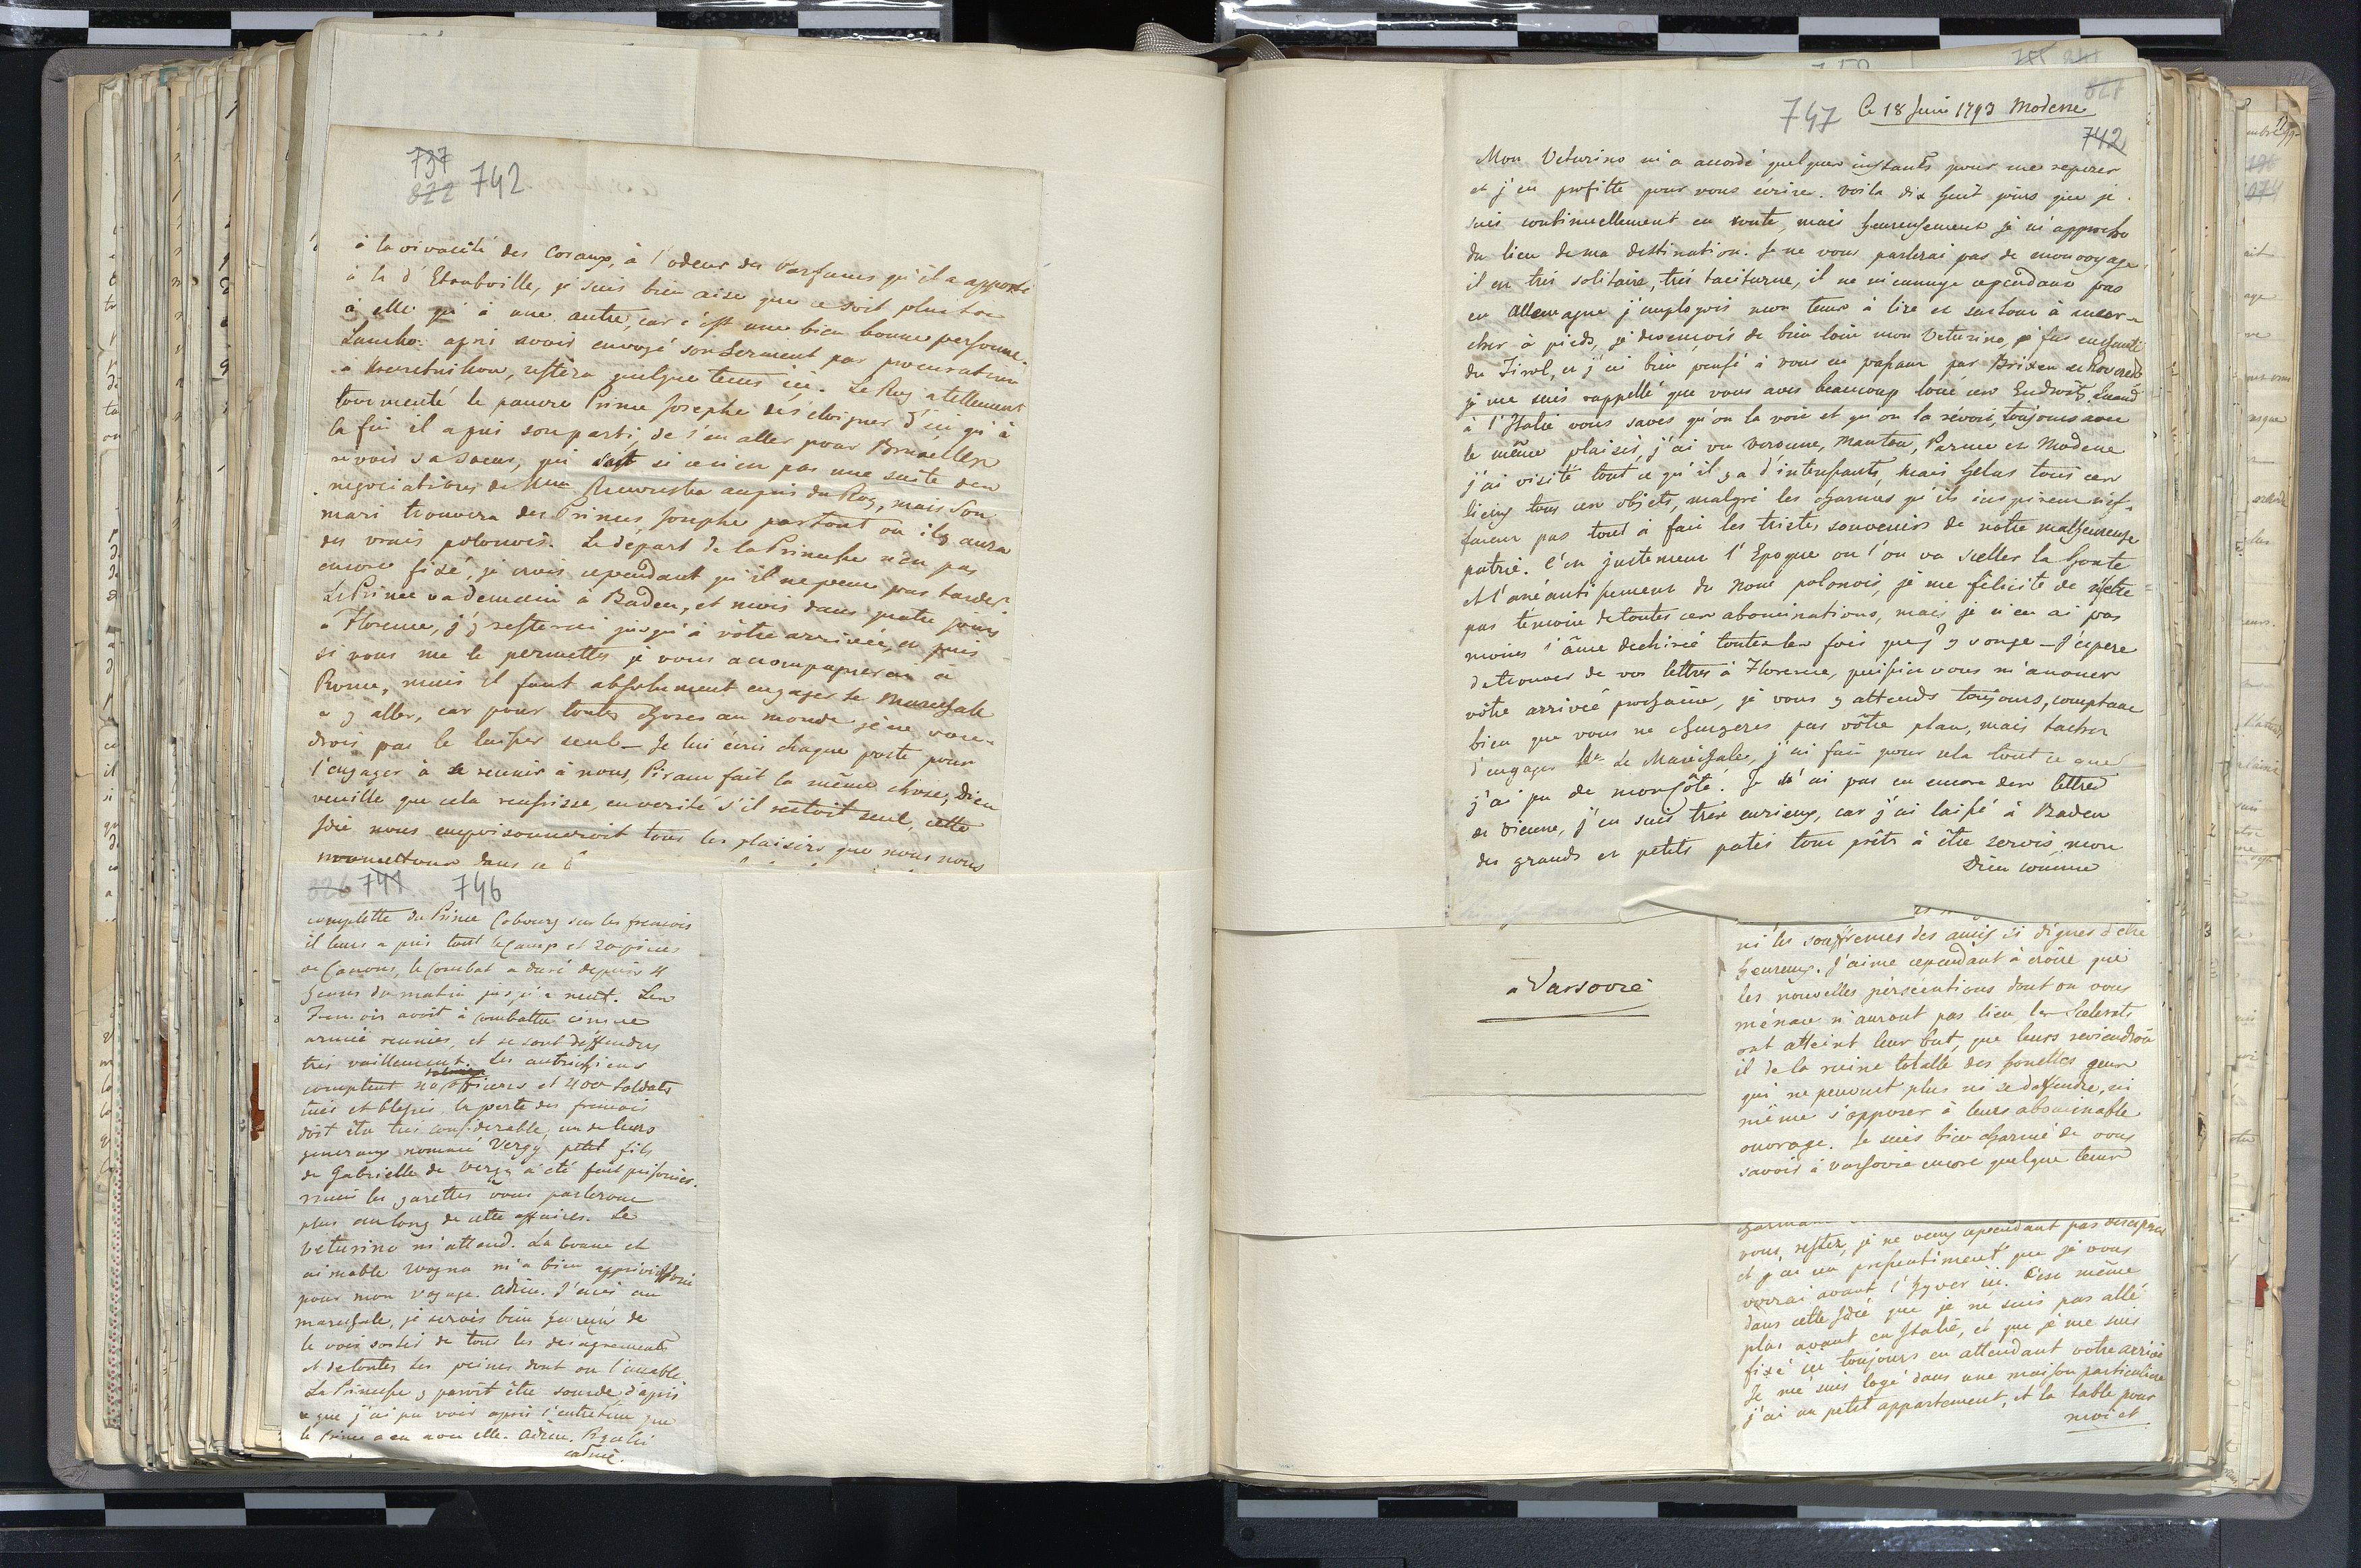 737
822 742
à la vivacité des Coraux, à l'odeur des Parfums qu'il a apporté
à la d'Etoubville, je suis bien aise que ce soit plustot
à elle qu'à une autre, car c'est une bien bonne personne.
après avoir envoyé son Serment par procuration
à restera quelque tems ici. Le Roy a tellement
tourmenté le pauvre Prince Josephe de s'eloigner d'ici qu'à
la fin il a pris son parti, de s'en aller pour Bruxelles
revoir sa Soeur, qui sait si ceci n'en pas une suite des
negociations de auprès du Roy, mais Son
mari trouvera des Princes Josephe partout ou il y aura
des vrais polonois. Le départ de la Princesse n'en pas
encore fixé, je crois cependant qu'il ne peut pas tarder.
Le Prince va demain à Baden, et mois dans quatre jours
à Florence, j'y resterai jusqu'à vôtre arrivée, et puis
si vous me le permettez je vous accompagnerai à
Rome, mais il faut absolument engager le Marechale
a y aller, car pour toutes choses au monde je ne vou-
drois pas le laisser seul – Je lui écris chaque poste pour
l'engager à se reunir à nous, Piram fait la même chose, Dieu
veuille que cela reussisse, en verité s'il restoit seul, cette
Idée nous empoisonneroit tous les plaisirs que nous nous
promettons dans ce
826 741 746
complette du Prince Cobourg sur les francois
il leurs a pris tout le Camp et 20 pieces
de Canons, le Combat a duré depuis 4
heures du matin jusqu'a neuf. Les
Francois avoit à combattre
armée reunies, et se sont deffendus
très vaillement. Les autrichiens
comptent officiers et 400 Soldats
tués et blessés la perte des francois
doit être très considerable, un de leurs
generaux nommé Vergy petit fils
de Gabrielle de Vergy a été fait prisonier.
mais les gazettes vous parleront
plus au long de cette affaires. Le
Veturino m'attend. La bonne et
aimable Wogna m'a bien
pour mon voyage. Adieu. J'ecris au
marechale, je serois bien heureux de
le voir sortir de tous les desagrements
et de toutes les peines dont on l'accable
La Princesse y paroit être sourde d'après
ce que j'ai pu voir après l'entretien que
le Prince a eu avec elle. Adieu.
747 Ce 18 Juin 1793 Modene
827
742
Mon Veturino m'a accordé quelques instants pour me reposer
et j'en profitte pour vous écrire. Voila dix huit jours que je
suis continuellement en route, mais heureusement je m'approche
du lieu de ma destination. Je ne vous parlerai pas de mon voyage,
il en très solitaire, très taciturne, il ne m'ennuye cependant pas
en Allemagne j'employois mon tems à lire et surtout à mar-
cher à pieds, je devencois de bien loin mon Veturino, je fus enchanté
du Tirol, et j'ai bien pensé à vous en passant par Brixen et Roveredo
je me suis rappellé que vous aves beaucoup loué ces Endroits. Quand
à l'Italie vous saves qu'on la voit et qu'on la revoit toujours avec
le même plaisir, j'ai vu Veronne, Mantou, Parme et Modene
j'ai visité tout ce qu'il y a d'interessants, mais helas tous ces
lieux tous ces objets, malgré les charmes qu'ils inspirent n'ef-
facent pas tout à fait les tristes souvenirs de notre malheureuse
patrie. C'en justement l'Epoque ou l'on va sceller la honte
et l'anéantissement du Nom polonois, je me félicite de n'etre
pas témoin de toutes ces abominations, mais je n'en ai pas
moins l'âme dechirée toutes les fois que j'y songe – J'espere
de trouver de vos lettres à Florence, puisque vous m'anoncer
vôtre arrivée prochaine, je vous y attends toujours, comptant
bien que vous ne changeres pas vôtre plan, mais tachez
d'engager Mr Le Maréchale, j'ai fait pour cela tout ce que
j'ai pu de mon côté. Je n'ai pas eu encore des lettres
de Vienne, j'en suis très curieux, car j'ai laissé à Baden
des grands et petits patés tout prêts à être servis, mon
Dieu comme
a Varsovie
ni les souffrences des amis si dignes d'être
heureux. J'aime cependant à croire que
les nouvelles persecutions dont on vous
ménace n'auront pas lieu, les Scelerats
ont atteint leur but, que leurs reviendroit
il de la ruine totalle des honettes gens
qui ne peuvent plus ni se deffendre, ni
même s'opposer à leurs abominable
ouvrage. Je suis bien charmé de vous
savoir à Varsovie encore quelque tems
vous rester, je ne veux cependant pas
et j'ai un pressentiment que je vous
verrai avant l'hyver ici. C'est même
dans cette Idée que je ne suis pas allé
plus avant en Italie, et que je me suis
fixé ici toujours en attendant votre arrivée
Je me suis logé dans une maison particuliere
j'ai un petit appartement, et la table pour
moi et